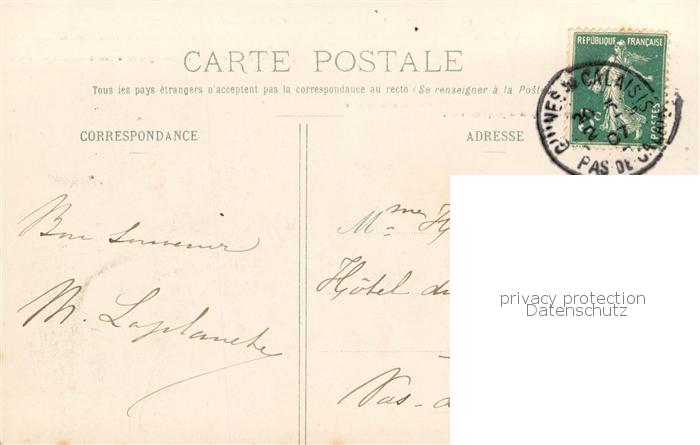 CARTE POSTALE
Tous les pays étrangers n'acceptent pas la correspondance au recto (Se renseigner à la Poste
CORRESPONDANCE
ADRESSE
RÉPUBLIQUE FRANÇAISE
POSTES
CALAISIS
PAS-DE-CALAIS
Bon Souvenir
M. Laplanche
Mme
Hôtel du
Pas-d
privacy protection
Datenschutz